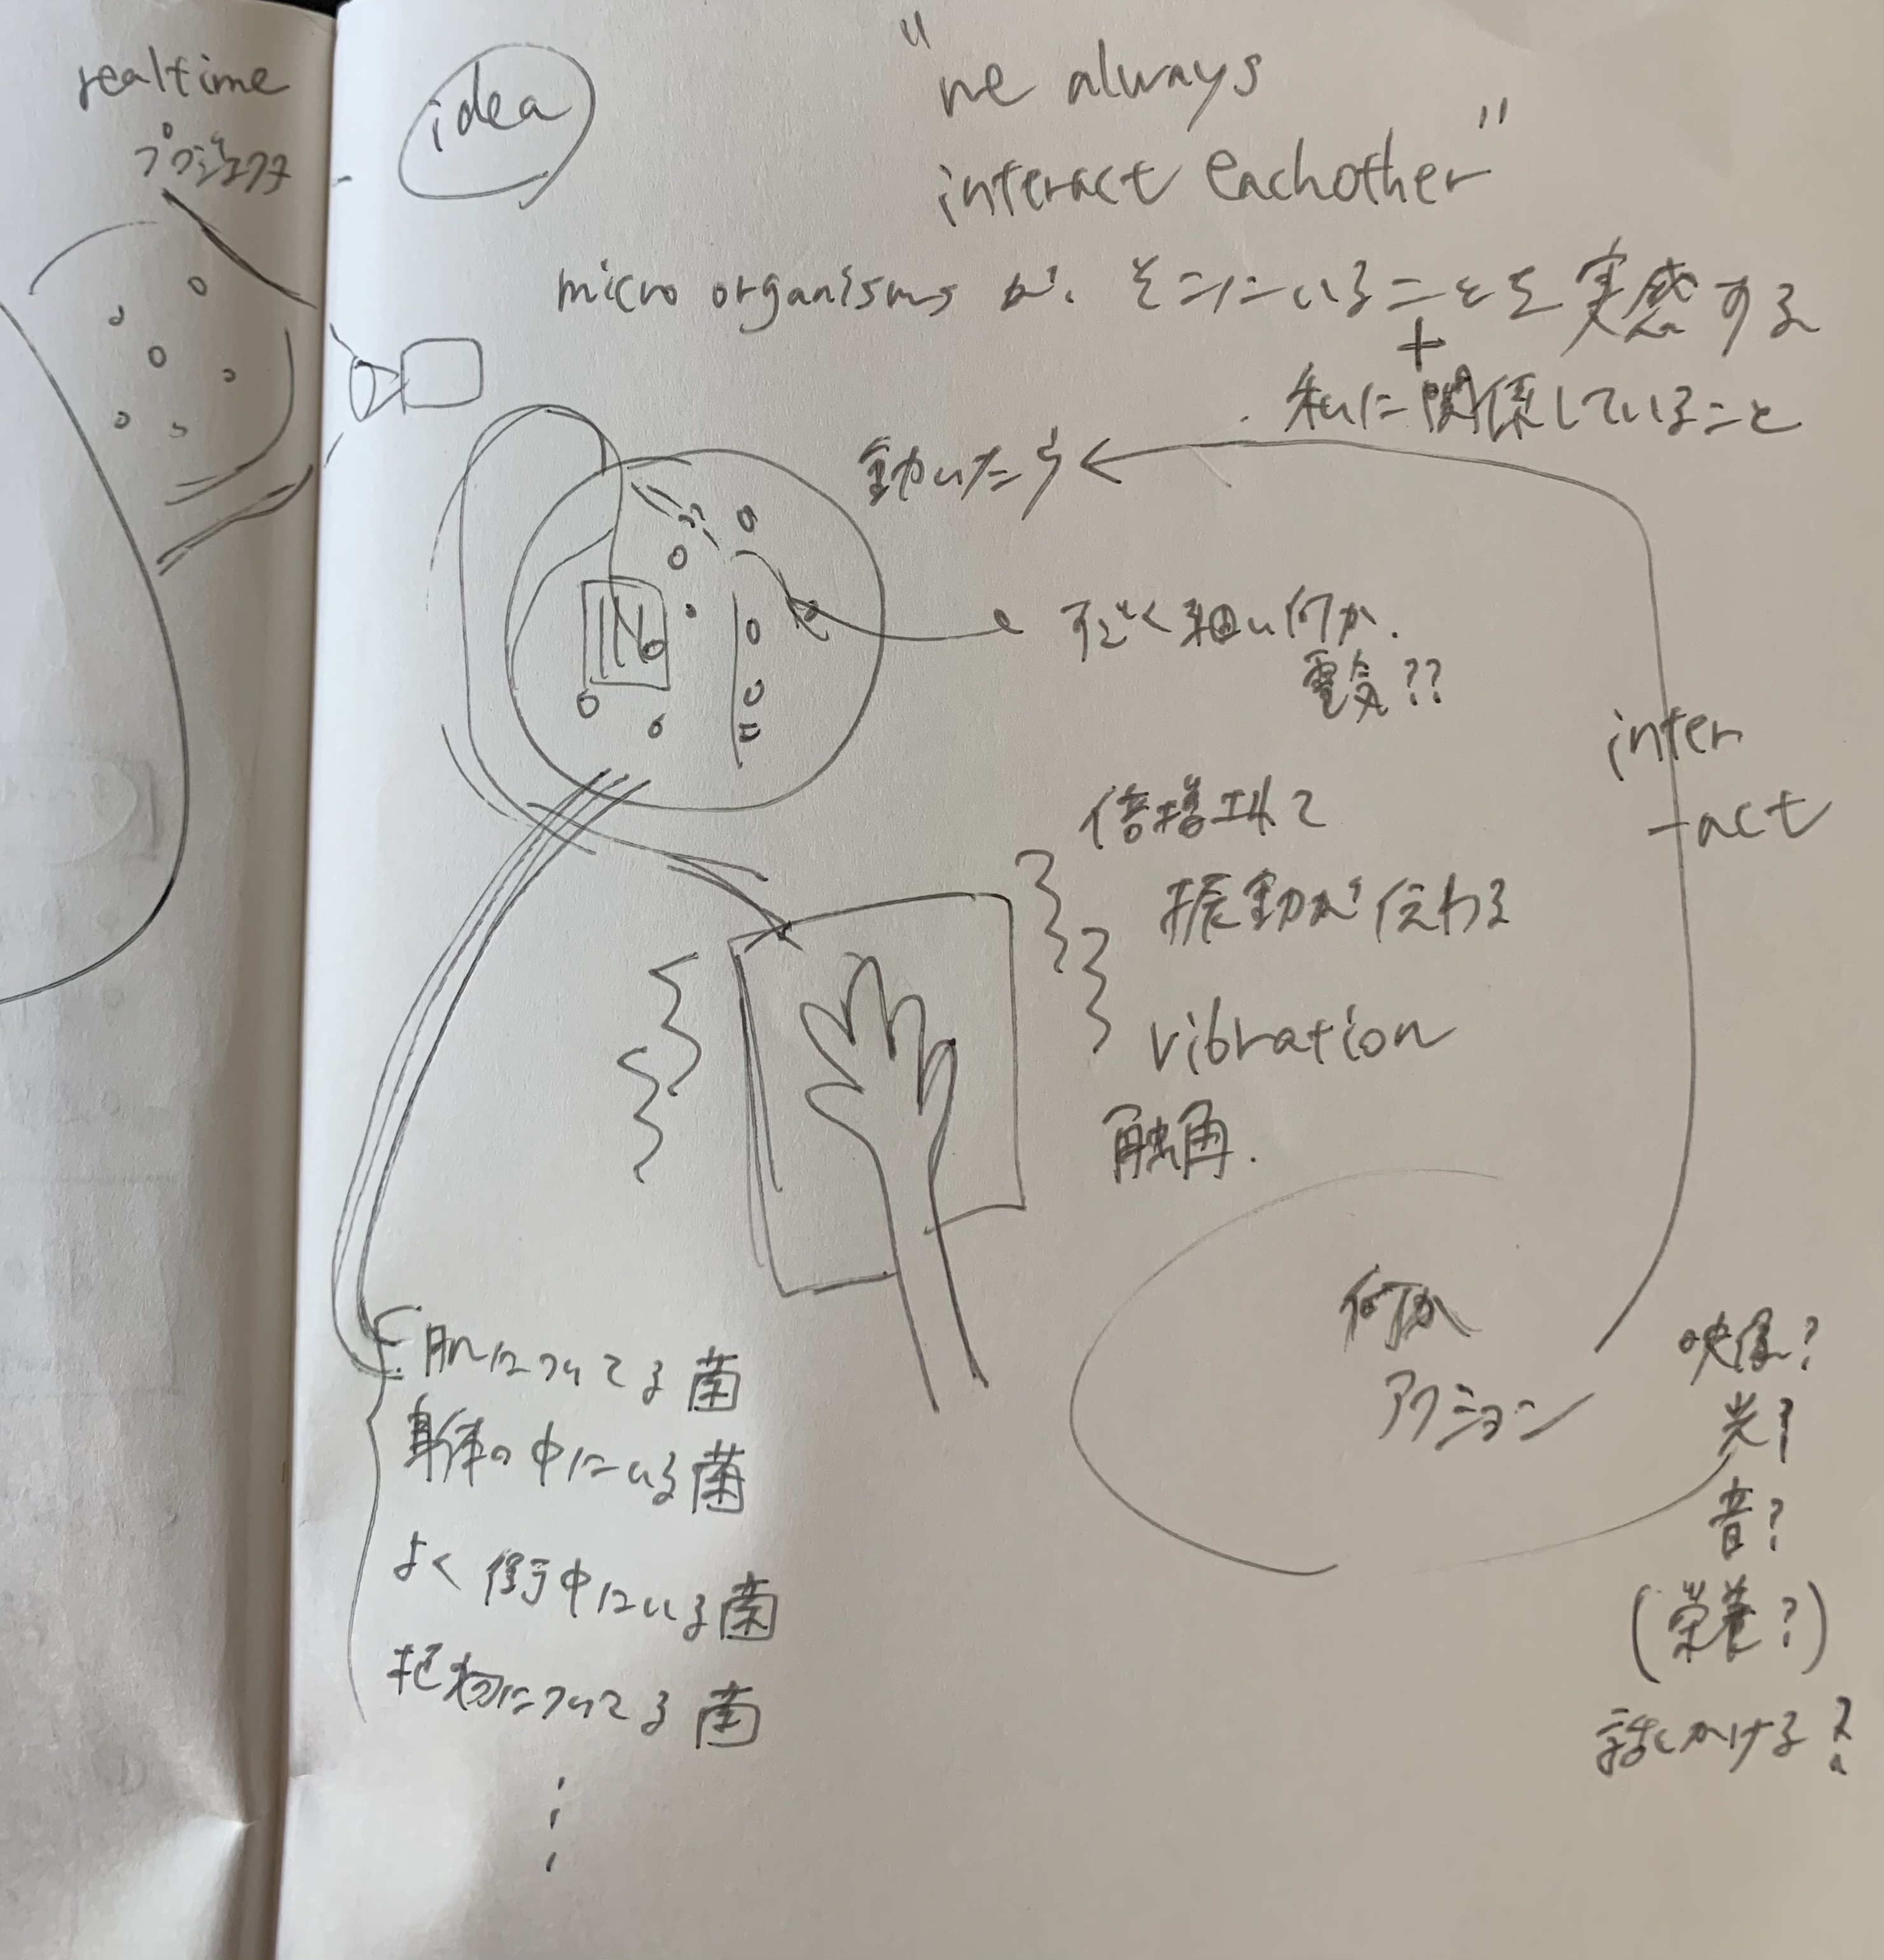 realtime
プロジェクタ
idea
"we always
interact eachother"
micro organisms が、そこにいることを実感する
+
私に関係していること
動いたら
すごく細い何か.
電気??
inter
-act
倍増されて
振動が伝わる
vibration
触角.
何か
アクション
映像?
光?
音?
(栄養?)
話しかける?
肌についてる菌
身体の中にいる菌
よく街中にいる菌
植物についてる菌